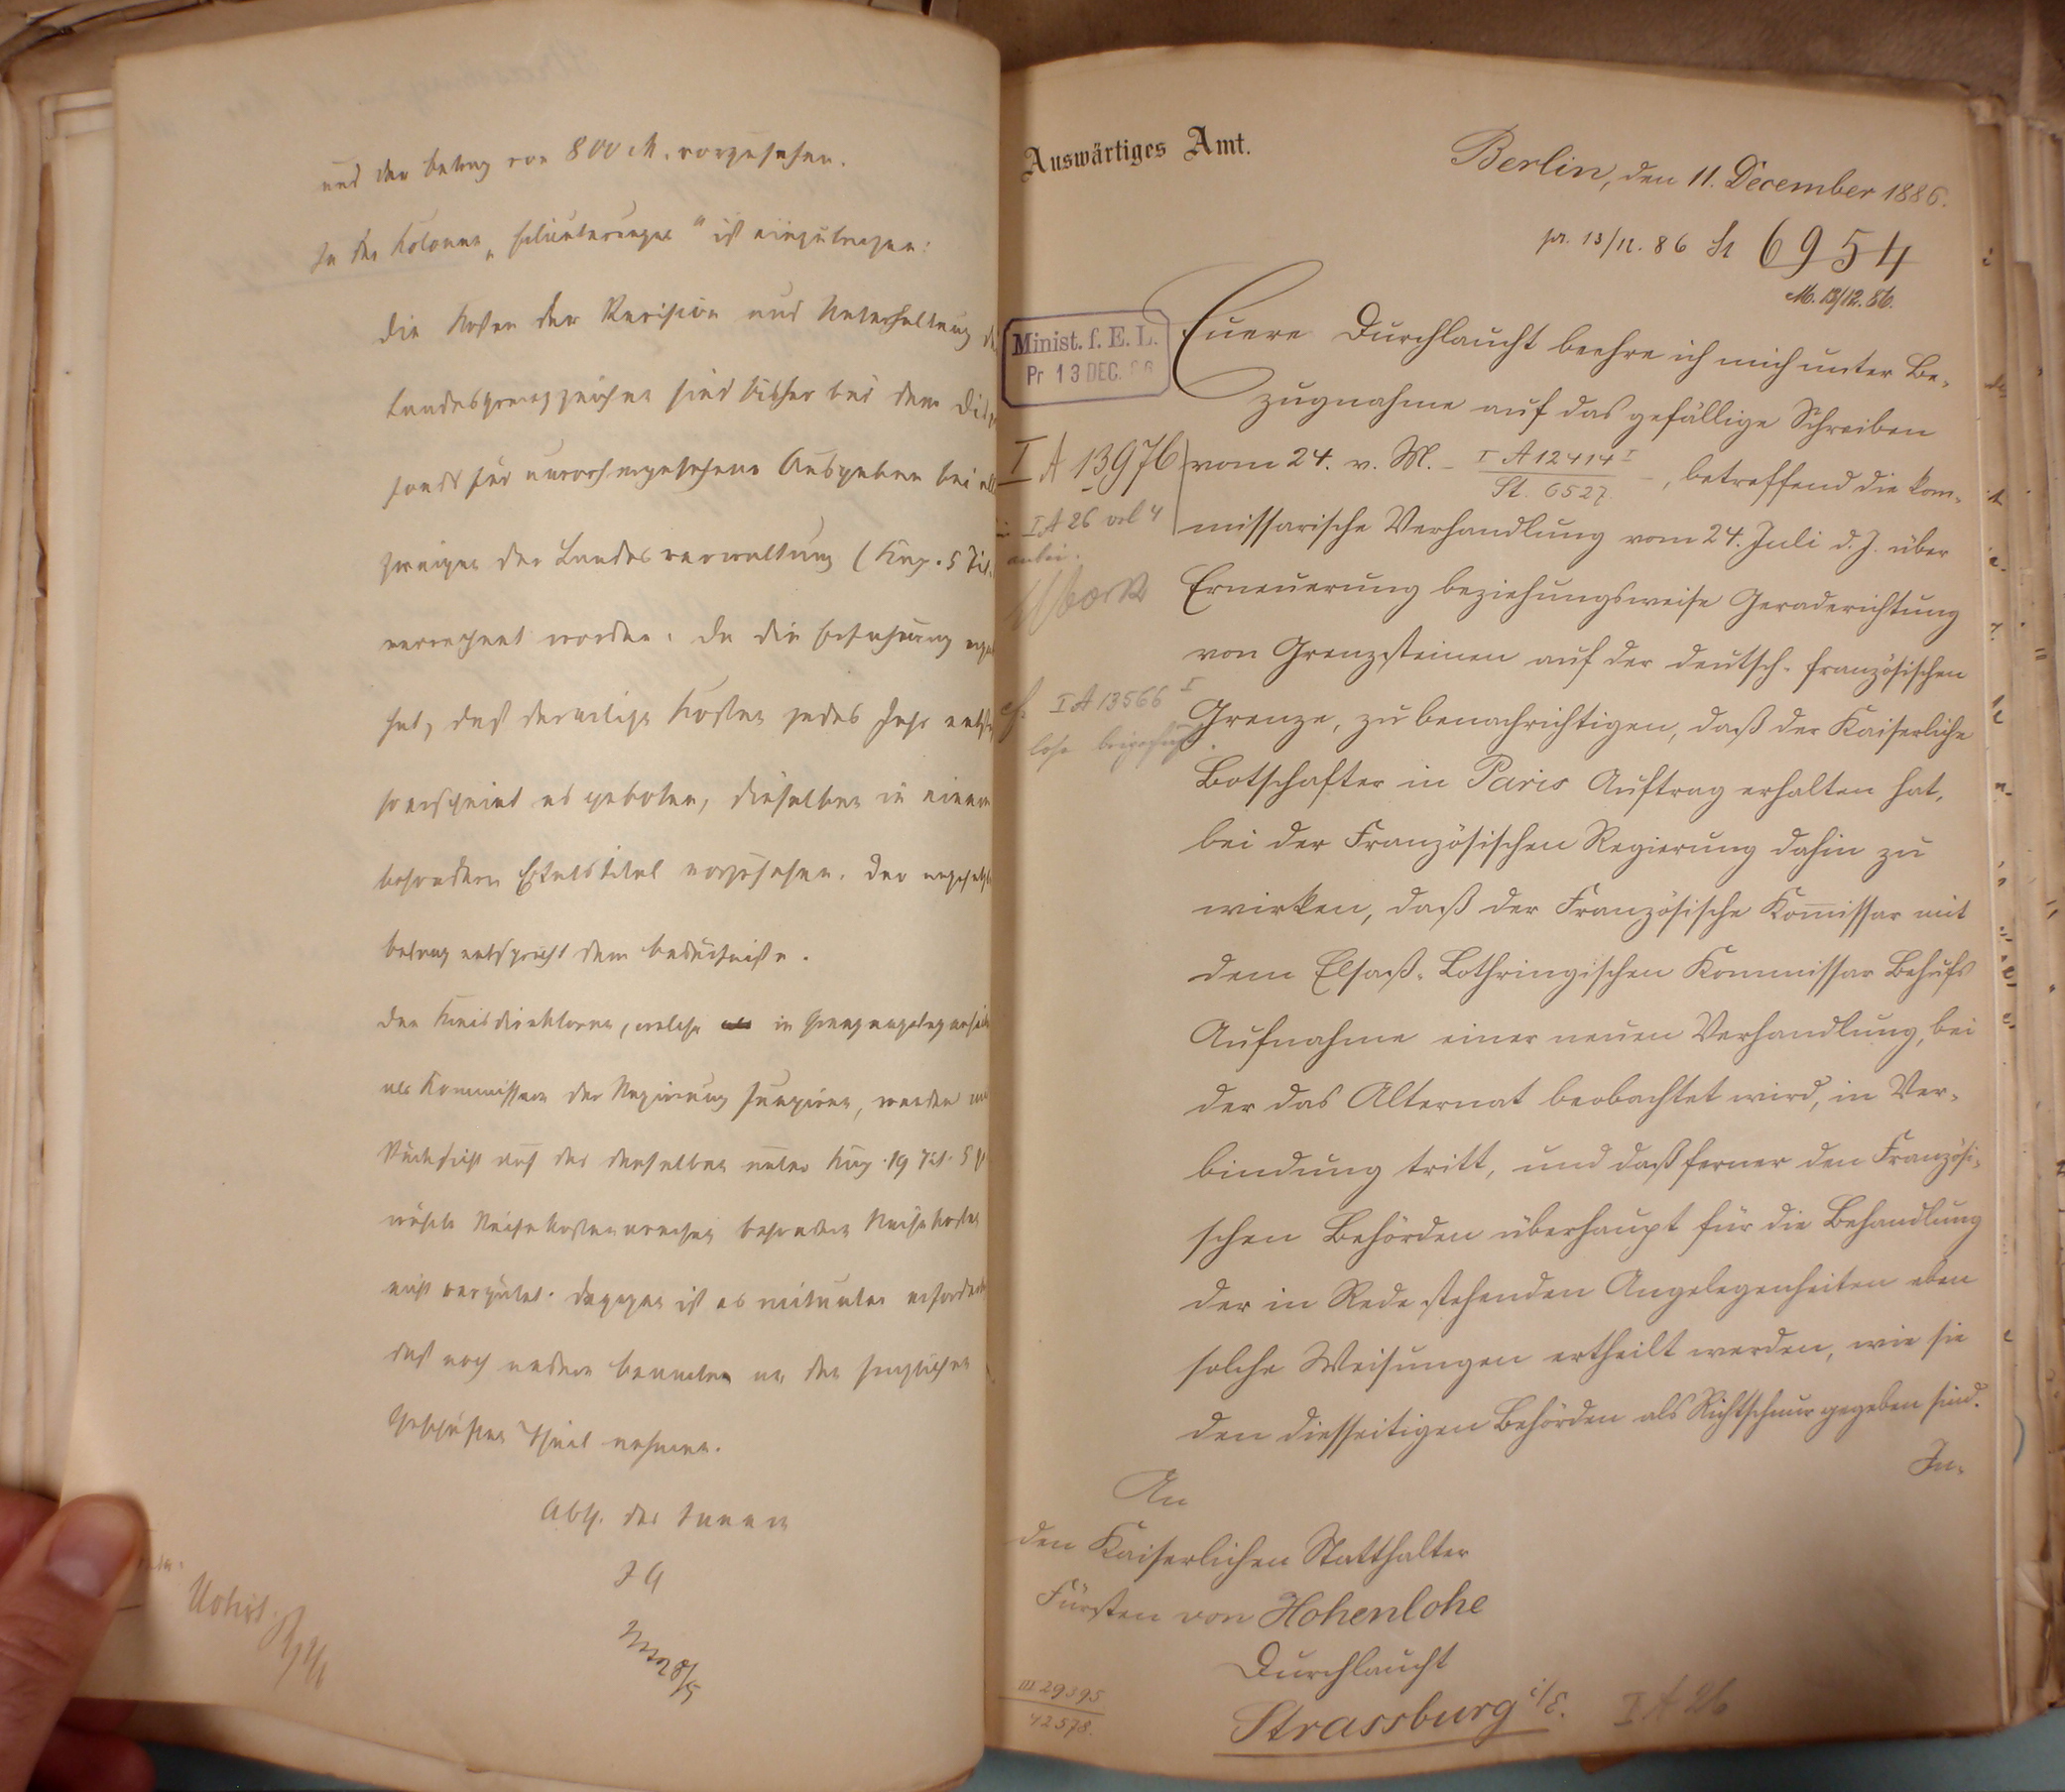 und der Betrag von 800 M. vorzusehen.
In der Kolonne „Erläuterungen“ ist einzutragen:
Die Kosten der Revision und Unterhaltung
Landesgrenzzeichen sind bisher bei dem
fonds für unvorhergesehene Ausgaben bei
zweigen der Landesverwaltung (Kap. 5 Tit.
verrechnet worden. Da die Erfahrung
hat, daß derartige Kosten jedes Jahr
so erscheint es geboten, dieselben in einem
besonderen Etatstitel vorzusehen. Der
Betrag entspricht dem Bedürfnisse.
Den Kreisdirektoren, welche in
als Kommissare der Regierung fungiren, werden
Rücksicht auf das denselben unter Kap. 19 Tit. 5
besondere Reisekosten
nicht vergütet. Dagegen ist es mitunter
daß noch andere Beamten an den
Geschäften Theil nehmen.
Abth. des Innern
Auswärtiges Amt.
Berlin, den 11. December 1886.
pr. 13/12. 86 St 6954
M. 13/12. 86.
Minist. f. E. L.
Pr 13 DEC. 86
Euere Durchlaucht beehre ich mich unter Be-
zugnahme auf das gefällige Schreiben
I A 13976
vom 24. v. M. - I A 12414 I / St. 6527. -, betreffend die kom-
I A 26 vol 4
anbei.
missarische Verhandlung vom 24. Juli d. J. über
Erneuerung beziehungsweise Geraderichtung
von Grenzsteinen auf der deutsch-französischen
cf. I A 13566 I
lose beigefügt.
Grenze, zu benachrichtigen, daß der Kaiserliche
Botschafter in Paris Auftrag erhalten hat,
bei der Französischen Regierung dahin zu
wirken, daß der Französische Kom̅issar mit
dem Elsaß-Lothringischen Kommissar Behufs
Aufnahme einer neuen Verhandlung, bei
der das Alternat beobachtet wird, in Ver-
bindung tritt, und daß ferner den Französi-
schen Behörden überhaupt für die Behandlung
der in Rede stehenden Angelegenheiten eben
solche Weisungen ertheilt werden, wie sie
den diesseitigen Behörden als Richtschnur gegeben sind.
In-
An
den Kaiserlichen Statthalter
Fürsten von Hohenlohe
Durchlaucht
Strassburg i/E.
III 29395
42578.
I A 26